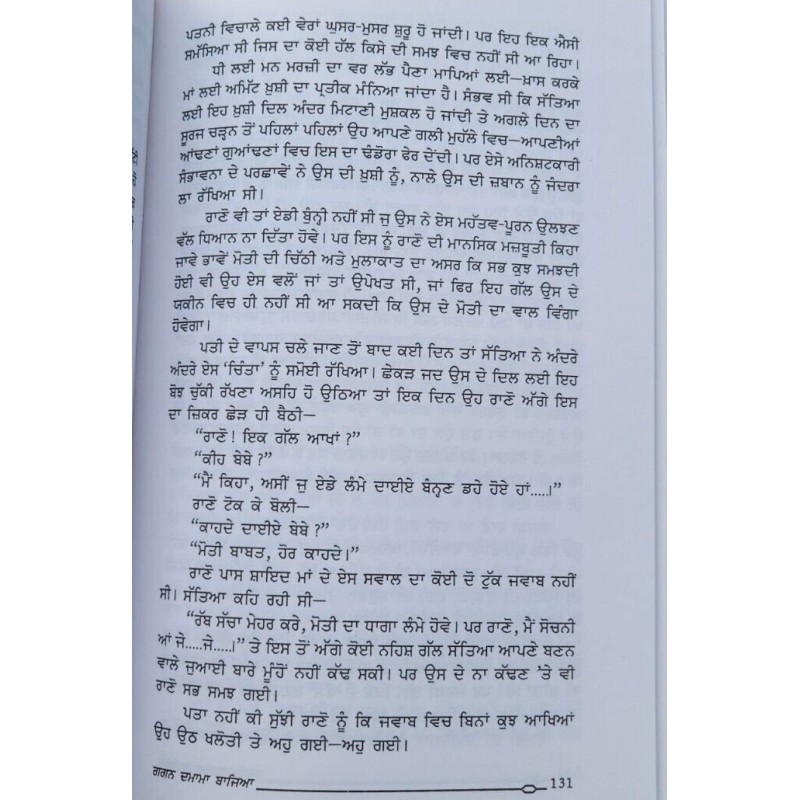 ਪਤਨੀ ਵਿਚਾਲੇ ਕਈ ਵੇਰਾਂ ਘੁਸਰ-ਮੁਸਰ ਸ਼ੁਰੂ ਹੋ ਜਾਂਦੀ। ਪਰ ਇਹ ਇਕ ਐਸੀ
ਸਮੱਸਿਆ ਸੀ ਜਿਸ ਦਾ ਕੋਈ ਹੱਲ ਕਿਸੇ ਦੀ ਸਮਝ ਵਿਚ ਨਹੀਂ ਸੀ ਆ ਰਿਹਾ।
ਧੀ ਲਈ ਮਨ ਮਰਜ਼ੀ ਦਾ ਵਰ ਲੱਭ ਪੈਣਾ ਮਾਪਿਆਂ ਲਈ—ਖ਼ਾਸ ਕਰਕੇ
ਮਾਂ ਲਈ ਅਮਿੱਟ ਖ਼ੁਸ਼ੀ ਦਾ ਪ੍ਰਤੀਕ ਮੰਨਿਆ ਜਾਂਦਾ ਹੈ। ਸੰਭਵ ਸੀ ਕਿ ਸੱਤਿਆ
ਲਈ ਇਹ ਖ਼ੁਸ਼ੀ ਦਿਲ ਅੰਦਰ ਮਿਟਾਣੀ ਮੁਸ਼ਕਲ ਹੋ ਜਾਂਦੀ ਤੇ ਅਗਲੇ ਦਿਨ ਦਾ
ਸੂਰਜ ਚੜ੍ਹਨ ਤੋਂ ਪਹਿਲਾਂ ਪਹਿਲਾਂ ਉਹ ਆਪਣੇ ਗਲੀ ਮੁਹੱਲੇ ਵਿਚ—ਆਪਣੀਆਂ
ਆਂਢਣਾਂ ਗੁਆਂਢਣਾਂ ਵਿਚ ਇਸ ਦਾ ਢੰਡੋਰਾ ਫੇਰ ਦੇਂਦੀ। ਪਰ ਏਸੇ ਅਨਿਸ਼ਟਕਾਰੀ
ਸੰਭਾਵਨਾ ਦੇ ਪਰਛਾਵੇਂ ਨੇ ਉਸ ਦੀ ਖ਼ੁਸ਼ੀ ਨੂੰ, ਨਾਲੇ ਉਸ ਦੀ ਜ਼ਬਾਨ ਨੂੰ ਜੰਦਰਾ
ਲਾ ਰੱਖਿਆ ਸੀ।
ਰਾਣੋ ਵੀ ਤਾਂ ਏਡੀ ਬੁੰਨ੍ਹੀ ਨਹੀਂ ਸੀ ਜੁ ਉਸ ਨੇ ਏਸ ਮਹੱਤਵ-ਪੂਰਨ ਉਲਝਣ
ਵੱਲ ਧਿਆਨ ਨਾ ਦਿੱਤਾ ਹੋਵੇ। ਪਰ ਇਸ ਨੂੰ ਰਾਣੋ ਦੀ ਮਾਨਸਿਕ ਮਜ਼ਬੂਤੀ ਕਿਹਾ
ਜਾਵੇ ਭਾਵੇਂ ਮੋਤੀ ਦੀ ਚਿੱਠੀ ਅਤੇ ਮੁਲਾਕਾਤ ਦਾ ਅਸਰ ਕਿ ਸਭ ਕੁਝ ਸਮਝਦੀ
ਹੋਈ ਵੀ ਉਹ ਏਸ ਵਲੋਂ ਜਾਂ ਤਾਂ ਉਪੇਖਤ ਸੀ, ਜਾਂ ਫਿਰ ਇਹ ਗੱਲ ਉਸ ਦੇ
ਯਕੀਨ ਵਿਚ ਹੀ ਨਹੀਂ ਸੀ ਆ ਸਕਦੀ ਕਿ ਉਸ ਦੇ ਮੋਤੀ ਦਾ ਵਾਲ ਵਿੰਗਾ
ਹੋਵੇਗਾ।
ਪਤੀ ਦੇ ਵਾਪਸ ਚਲੇ ਜਾਣ ਤੋਂ ਬਾਦ ਕਈ ਦਿਨ ਤਾਂ ਸੱਤਿਆ ਨੇ ਅੰਦਰੇ
ਅੰਦਰੇ ਏਸ 'ਚਿੰਤਾ' ਨੂੰ ਸਮੋਈ ਰੱਖਿਆ। ਛੇਕੜ ਜਦ ਉਸ ਦੇ ਦਿਲ ਲਈ ਇਹ
ਬੋਝ ਚੁੱਕੀ ਰੱਖਣਾ ਅਸਹਿ ਹੋ ਉਠਿਆ ਤਾਂ ਇਕ ਦਿਨ ਉਹ ਰਾਣੋ ਅੱਗੇ ਇਸ
ਦਾ ਜ਼ਿਕਰ ਛੇੜ ਹੀ ਬੈਠੀ—
"ਰਾਣੋ! ਇਕ ਗੱਲ ਆਖਾਂ ?"
"ਕੀਹ ਬੇਬੇ ?"
"ਮੈਂ ਕਿਹਾ, ਅਸੀਂ ਜੁ ਏਡੇ ਲੰਮੇ ਦਾਈਏ ਬੰਨ੍ਹਣ ਡਹੇ ਹੋਏ ਹਾਂ.....।"
ਰਾਣੋ ਟੋਕ ਕੇ ਬੋਲੀ—
"ਕਾਹਦੇ ਦਾਈਏ ਬੇਬੇ ?"
"ਮੋਤੀ ਬਾਬਤ, ਹੋਰ ਕਾਹਦੇ।"
ਰਾਣੋ ਪਾਸ ਸ਼ਾਇਦ ਮਾਂ ਦੇ ਏਸ ਸਵਾਲ ਦਾ ਕੋਈ ਦੋ ਟੁੱਕ ਜਵਾਬ ਨਹੀਂ
ਸੀ। ਸੱਤਿਆ ਕਹਿ ਰਹੀ ਸੀ—
"ਰੱਬ ਸੱਚਾ ਮੇਹਰ ਕਰੇ, ਮੋਤੀ ਦਾ ਧਾਗਾ ਲੰਮੇ ਹੋਵੇ। ਪਰ ਰਾਣੋ, ਮੈਂ ਸੋਚਨੀ
ਆਂ ਜੇ.....ਜੇ.....।" ਤੇ ਇਸ ਤੋਂ ਅੱਗੇ ਕੋਈ ਨਹਿਸ਼ ਗੱਲ ਸੱਤਿਆ ਆਪਣੇ ਬਣਨ
ਵਾਲੇ ਜੁਆਈ ਬਾਰੇ ਮੂੰਹੋਂ ਨਹੀਂ ਕੱਢ ਸਕੀ। ਪਰ ਉਸ ਦੇ ਨਾ ਕੱਢਣ 'ਤੇ ਵੀ
ਰਾਣੋ ਸਭ ਸਮਝ ਗਈ।
ਪਤਾ ਨਹੀਂ ਕੀ ਸੁੱਝੀ ਰਾਣੋ ਨੂੰ ਕਿ ਜਵਾਬ ਵਿਚ ਬਿਨਾਂ ਕੁਝ ਆਖਿਆਂ
ਉਹ ਉਠ ਖਲੋਤੀ ਤੇ ਅਹੁ ਗਈ—ਅਹੁ ਗਈ।
ਗਗਨ ਦਮਾਮਾ ਬਾਜਿਆ 131